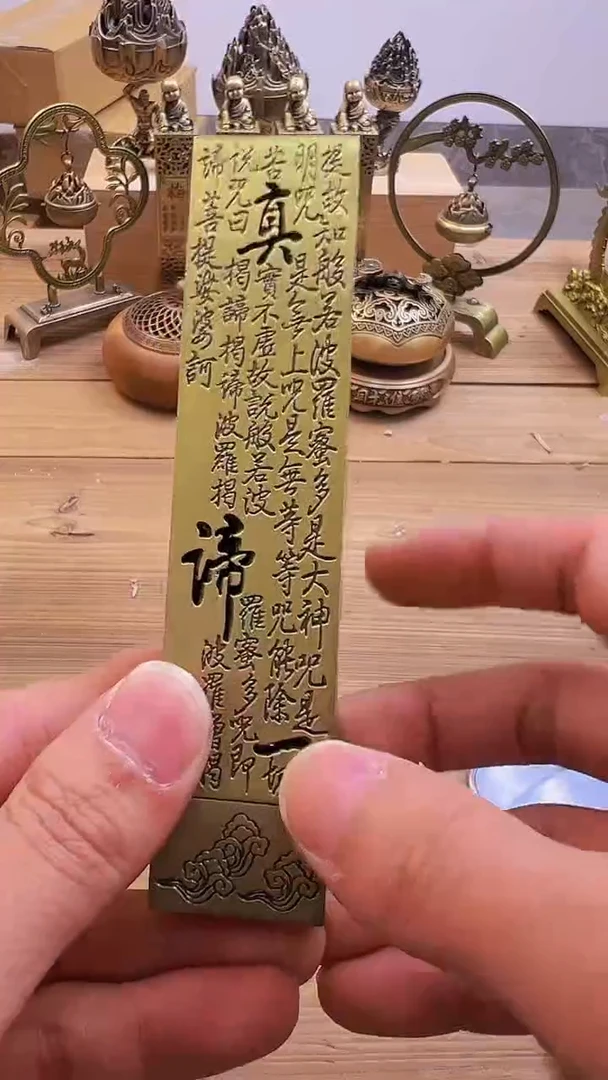 提故知般若波羅蜜多是大神呪是
明呪是無上呪是無等等呪能除一切
苦真實不虛故說般若波羅蜜多呪即
說呪曰揭諦揭諦波羅揭諦波羅僧揭
諦菩提娑婆訶